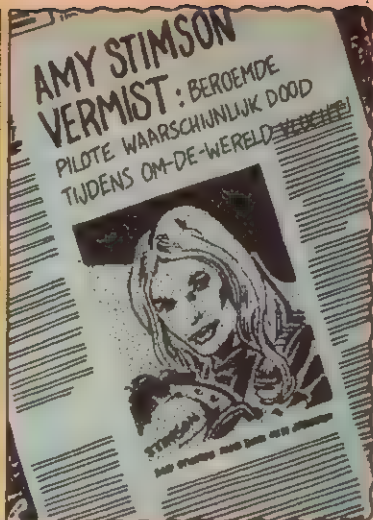 AMY STIMSON
VERMIST: BEROEMDE
PILOTE WAARSCHIJNLIJK DOOD
TIJDENS OM-DE-WERELD VLUCHT
STIMSON